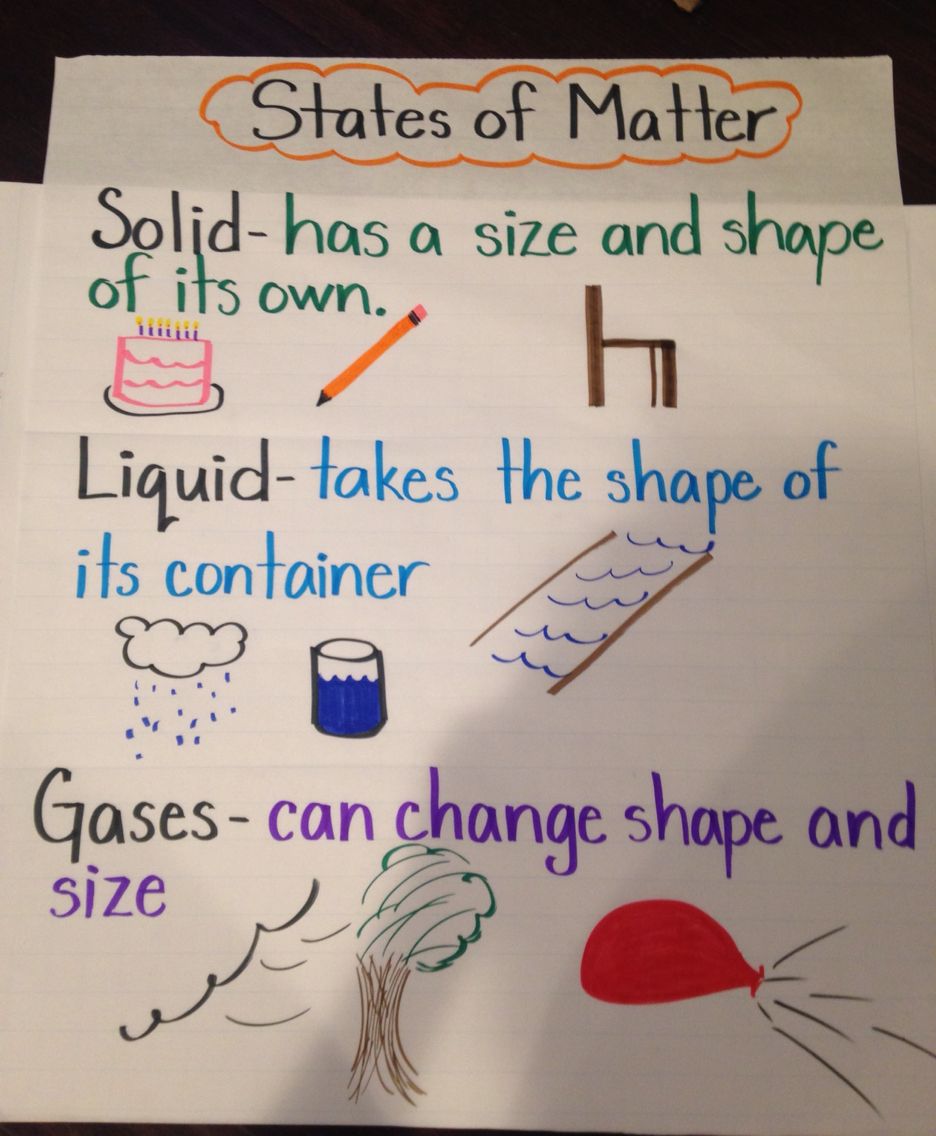 States of Matter
Solid- has a size and shape
of its own.
Liquid- takes the shape of
its container
Gases- can change shape and
size